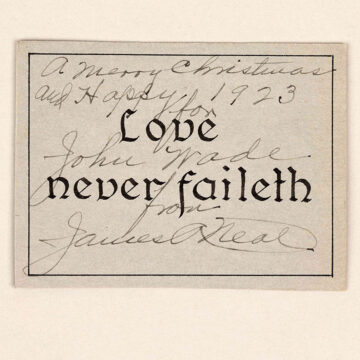 A Merry Christmas
and Happy 1923
for
Love
John Wade
never faileth
from
James A Neal